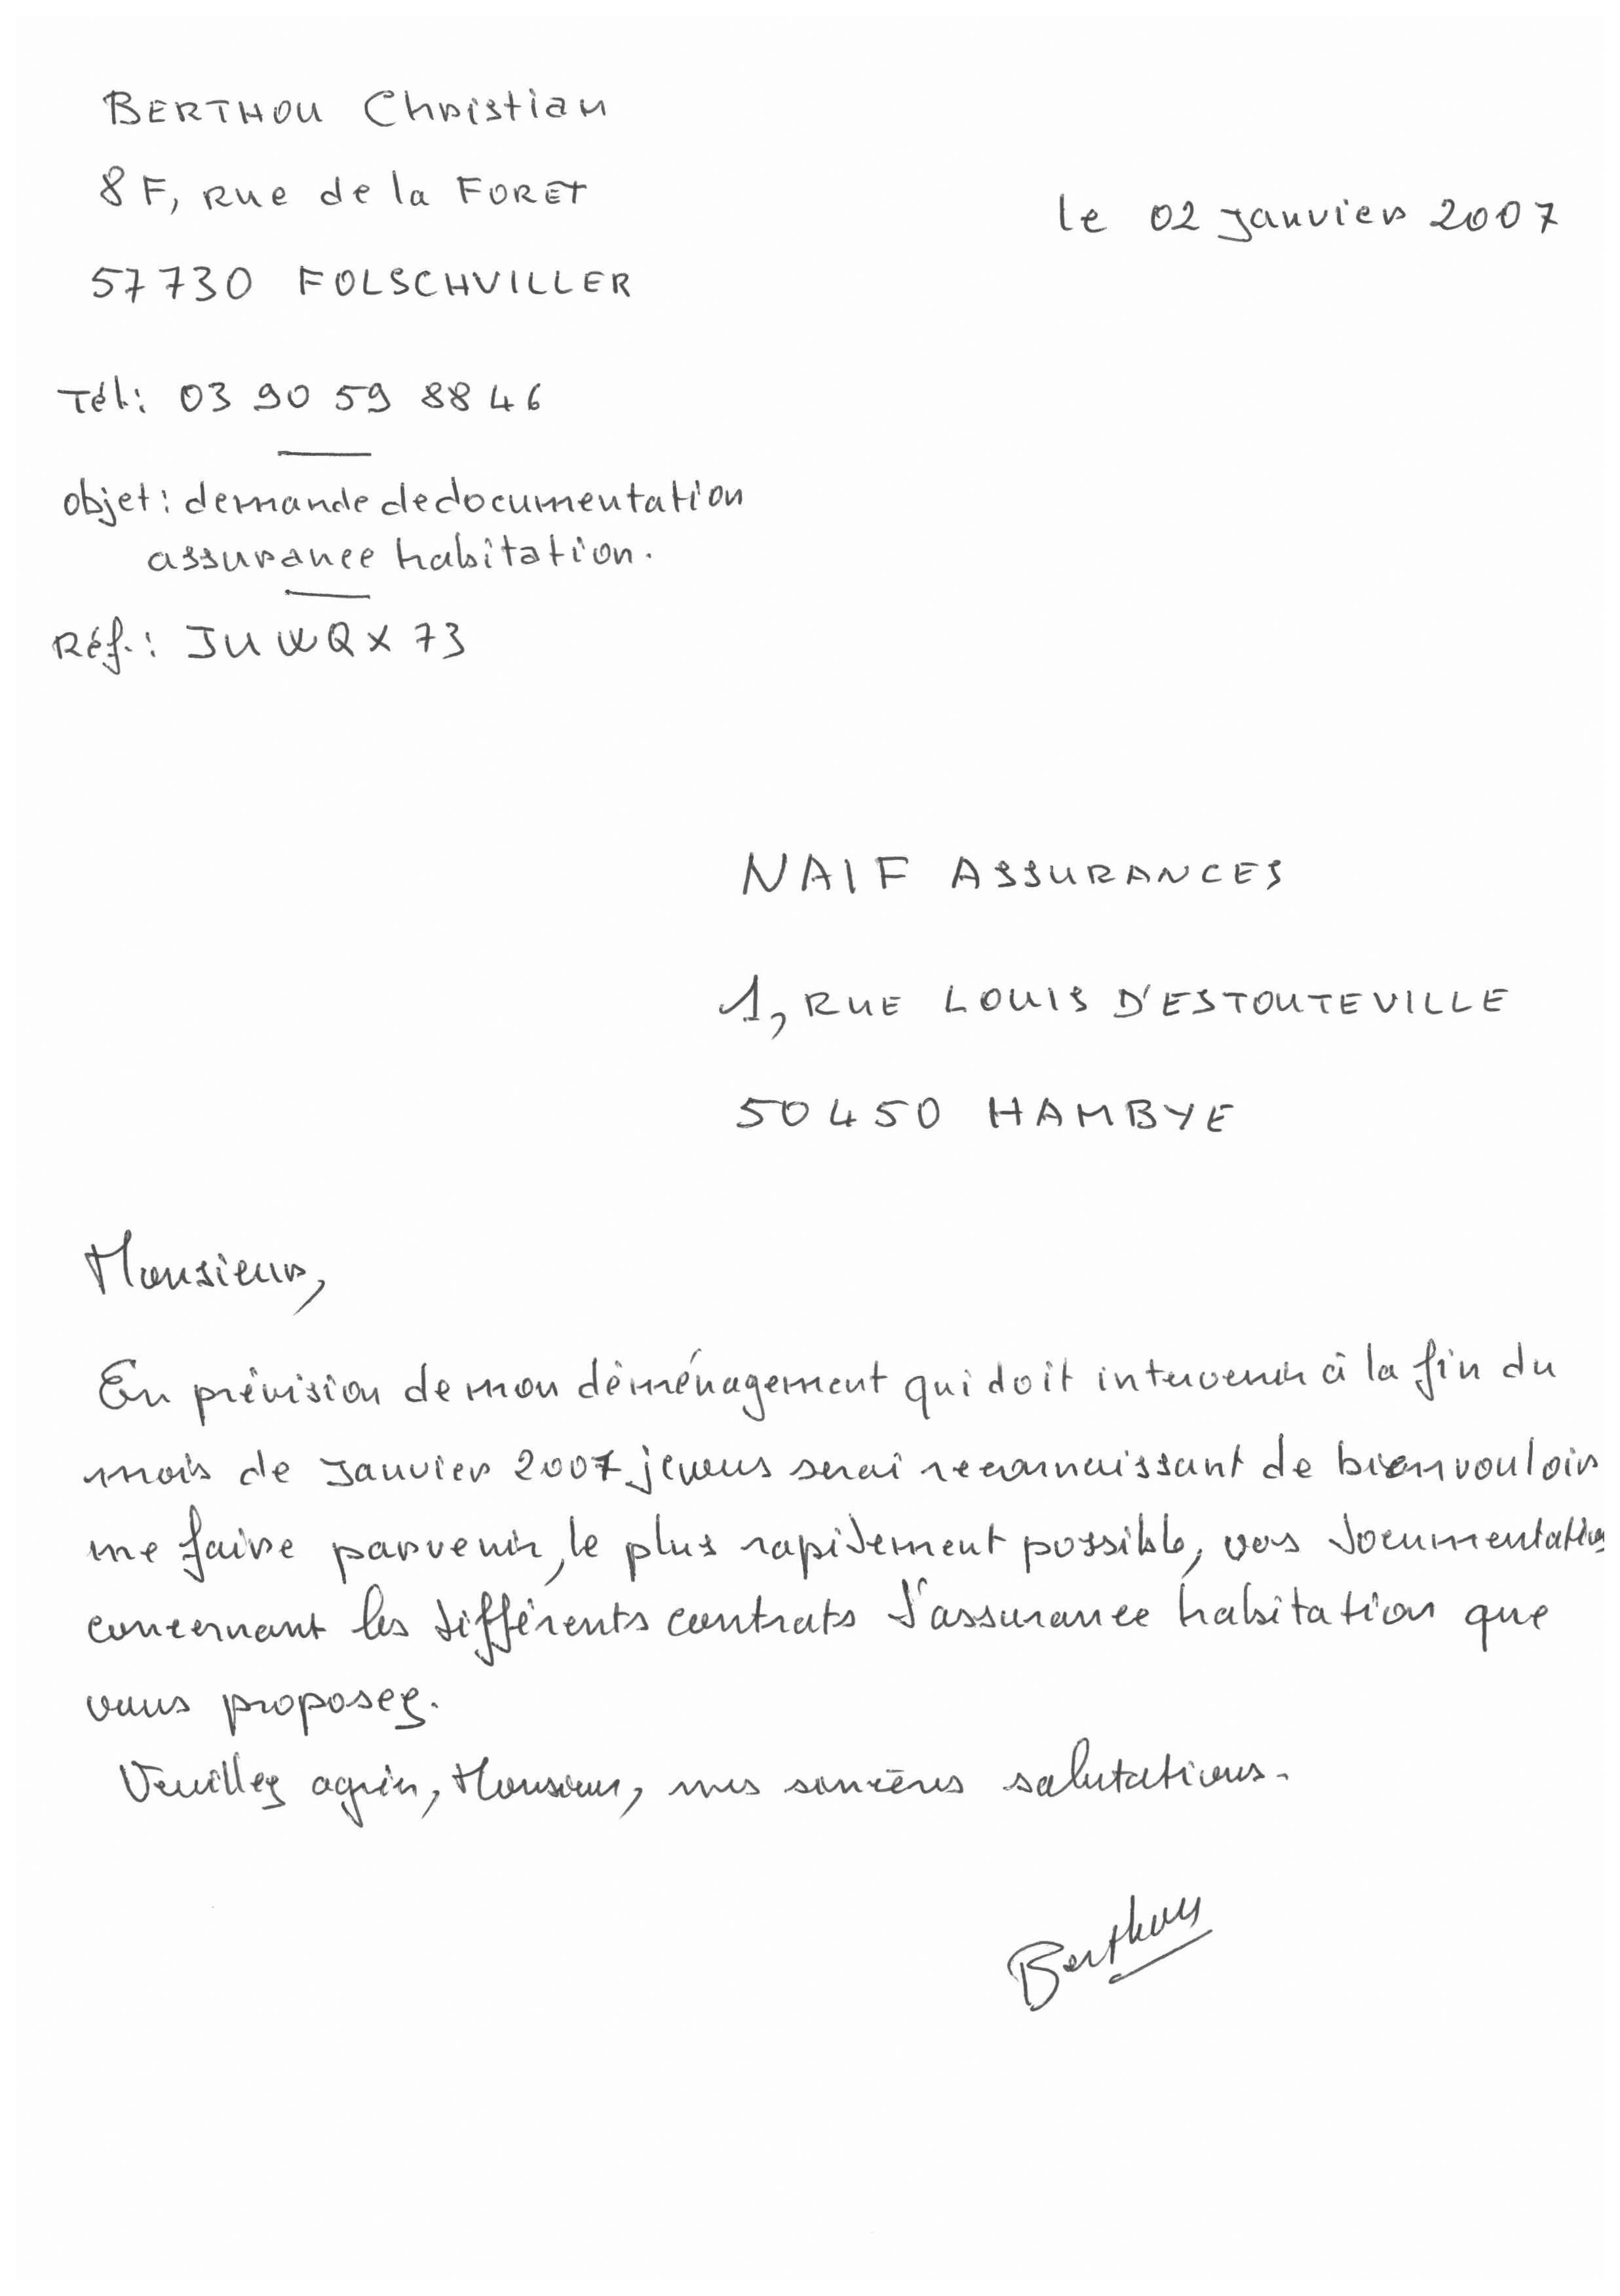 BERTHOU Christian
8 F, Rue de la FORET
le 02 Janvier 2007
57730 FOLSCHVILLER
Tél: 03 90 59 88 46
objet: demande de documentation
assurance habitation.
Réf.: JUWQX73
NAIF ASSURANCES
1, RUE LOUIS D'ESTOUTEVILLE
50450 HAMBYE
Monsieur,
En prévision de mon déménagement qui doit intervenir à la fin du
mois de Janvier 2007 je vous serai reconnaissant de bien vouloir
me faire parvenir, le plus rapidement possible, vos documentations
concernant les différents contrats d'assurance habitation que
vous proposez.
Veuillez agréer, Monsieur, mes sincères salutations.
Berthou